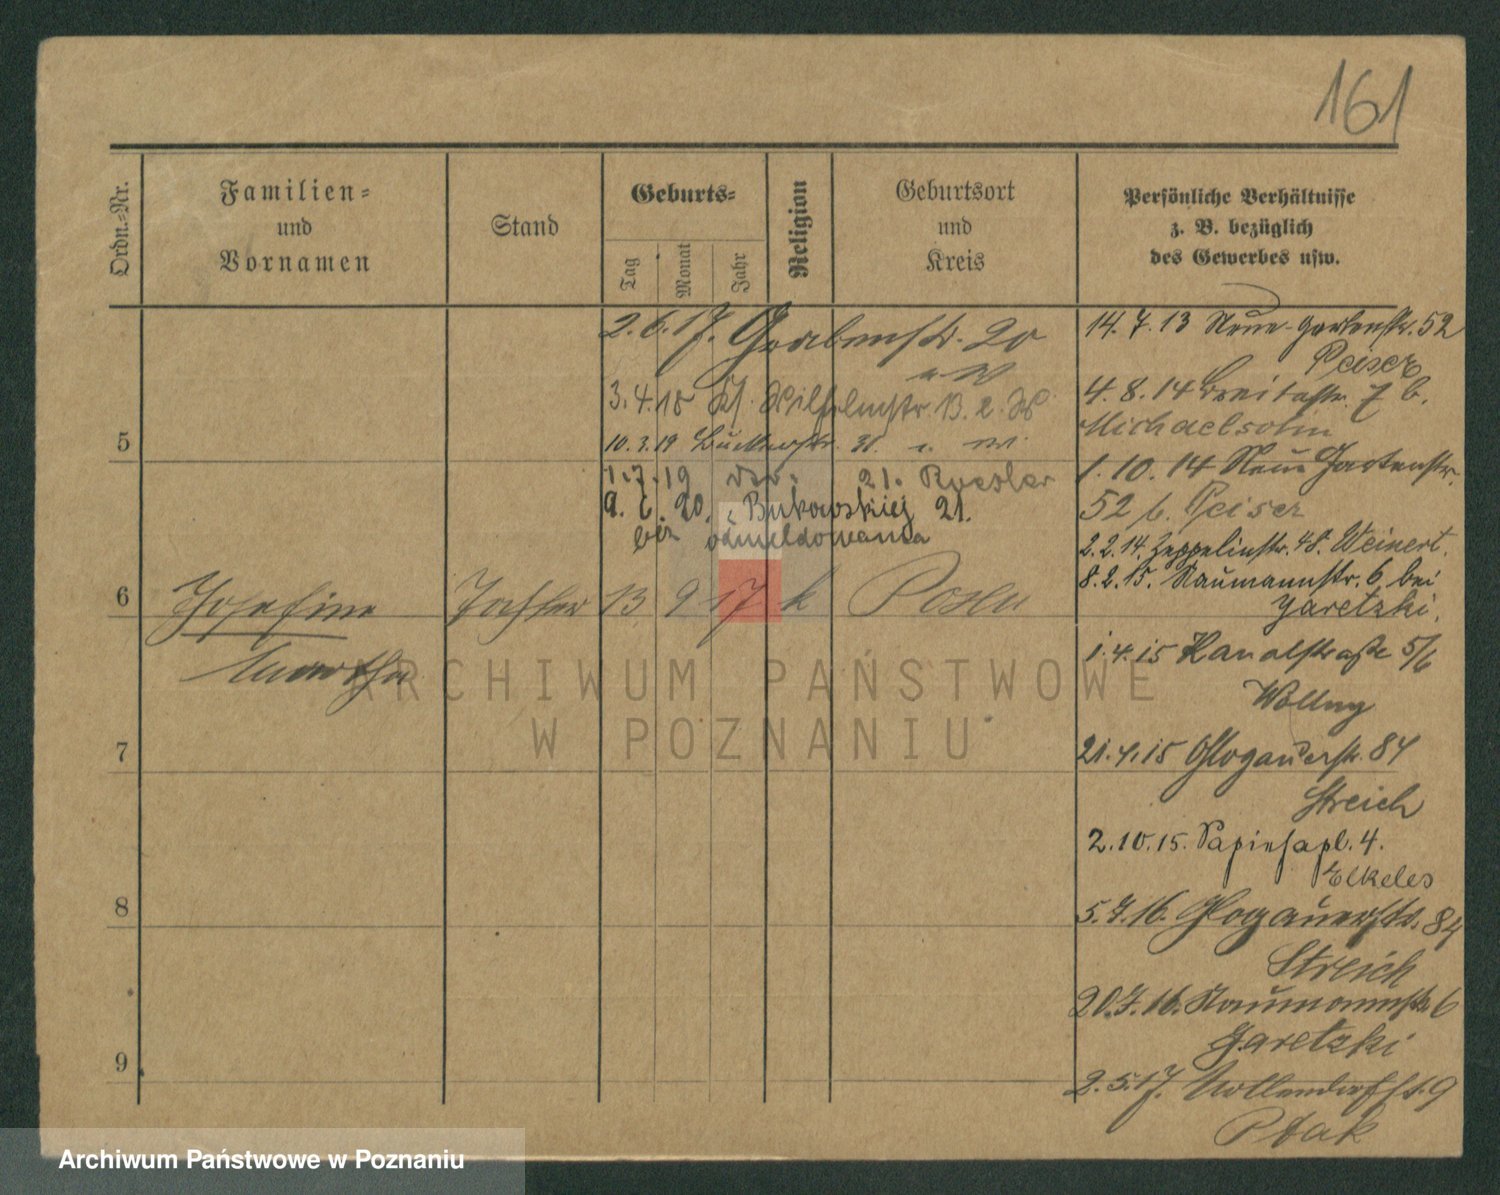 161
Ordn.=Nr.
Familien=
und
Vornamen
Stand
Geburts=
Tag
Monat
Jahr
Religion
Geburtsort
und
Kreis
Persönliche Verhältnisse
z. B. bezüglich
des Gewerbes usw.
2.6.17. Grabenstr. 20
3.4.18 Kl. Wilhelmstr. 13. 2. W
5
10.3.19 31.
1.7.19 21. Roesler
9. 6. 20. Bukowskiej 21.
bez odmeldowania
6
Josefine Tochter 13 9 17 k Posen
Martha
7
8
9
14.7.13 Neue-Gartenstr. 52
Peiser
4.8.14 Breitestr. 7 b.
Michaelsohn
1.10.14 Neue Gartenstr.
52 b. Peiser
2.2.14. Zeppelinstr. 48. Weinert.
8.2.15. Naumannstr. 6, bei
Jaretzki.
1.4.15 Kanalstraße 5/6
Wollny
21.4.15 Glogauerstr. 84
Streich
2.10.15. Sapiehapl. 4.
Elkeles
5.7.16. Glogauerstr. 84
Streich
20.7.16. Naumannstr. 6
Jaretzki
2.5.17. Nollendorfstr. 9
Ptak
ARCHIWUM PAŃSTWOWE
W POZNANIU
Archiwum Państwowe w Poznaniu